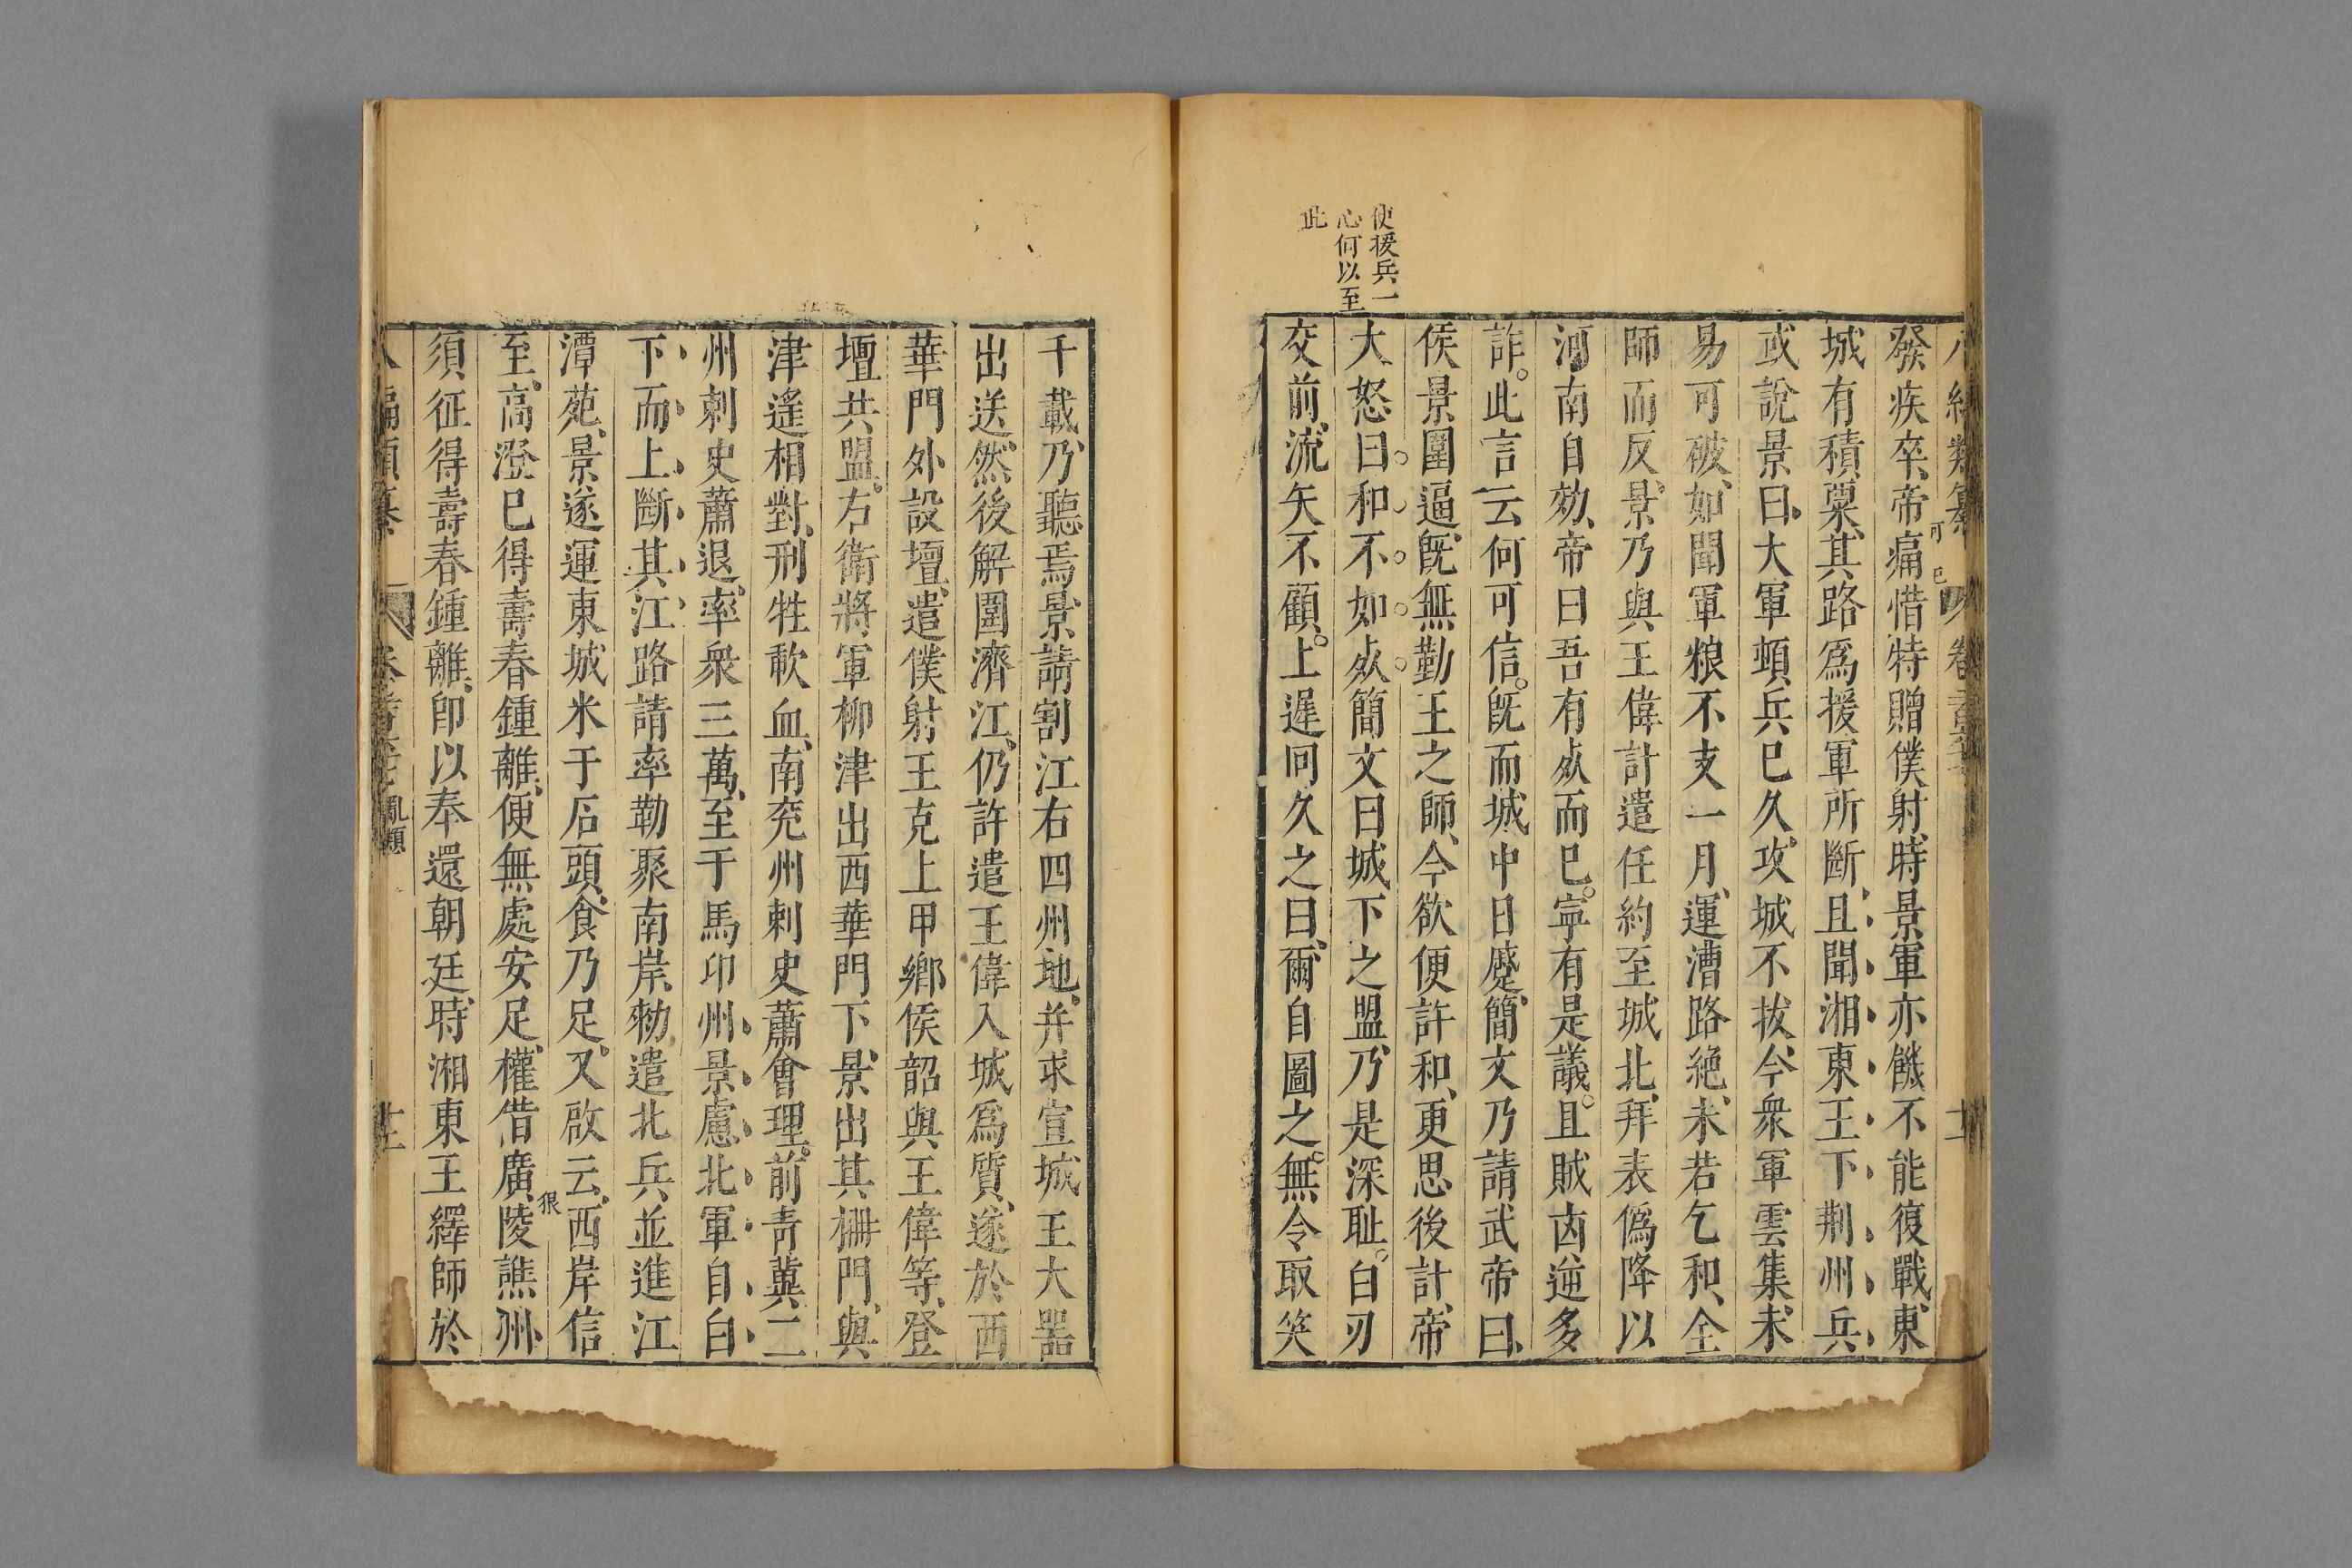 使援兵一
心何以至
此
發疾卒帝痛惜特贈僕射時景軍亦饑不能復戰東
可
城有積粟其路爲援軍所斷且聞湘東王下荆州兵
或說景曰大軍頓兵已久攻城不拔今衆軍雲集未
易可破如聞軍粮不支一月運漕路絶未若乞和全
師而反景乃與王偉計遣任約至城北拜表僞降以
河南自効帝曰吾有死而已寧有是議且賊凶逆多
詐此言云何可信既而城中日蹙簡文乃請武帝曰
侯景圍逼既無勤王之師今欲便許和更思後計帝
大怒曰和不如死簡文曰城下之盟乃是深耻白刃
交前流矢不顧上遲囘久之曰爾自圖之無令取笑
千載乃聽焉景請割江右四州地并求宣城王大器
出送然後解圍濟江仍許遣王偉入城爲質遂於西
華門外設壇遣僕射王克上甲鄉侯韶與王偉等登
壇共盟右衛將軍柳津出西華門下景出其柵門與
津遙相對刑牲歃血南兖州刺史蕭會理前青冀二
州刺史蕭退率衆三萬至于馬卬州景慮北軍自白
下而上斷其江路請率勒聚南岸勑遣北兵並進江
潭苑景遂運東城米于石頭食乃足又啟云西岸信
狠
至高澄已得壽春鍾離便無處安足權借廣陵譙州
須征得壽春鍾離卽以奉還朝廷時湘東王繹師於
亂類